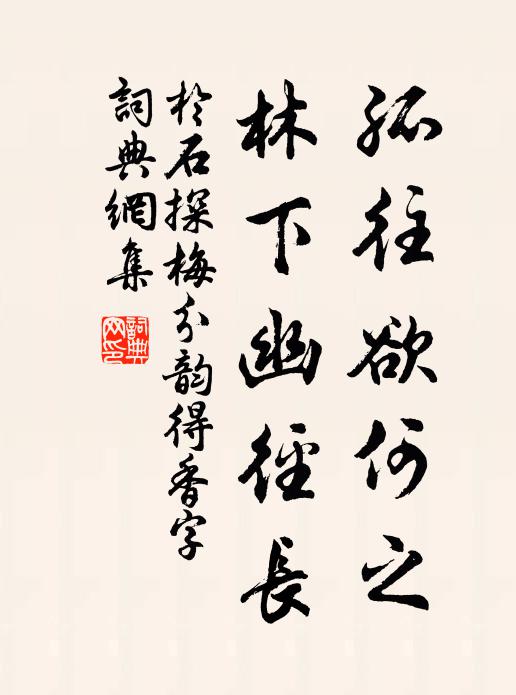 孤往欲何之
林下幽徑長
於石探梅分韵得香字
詞典網集
詞典網印